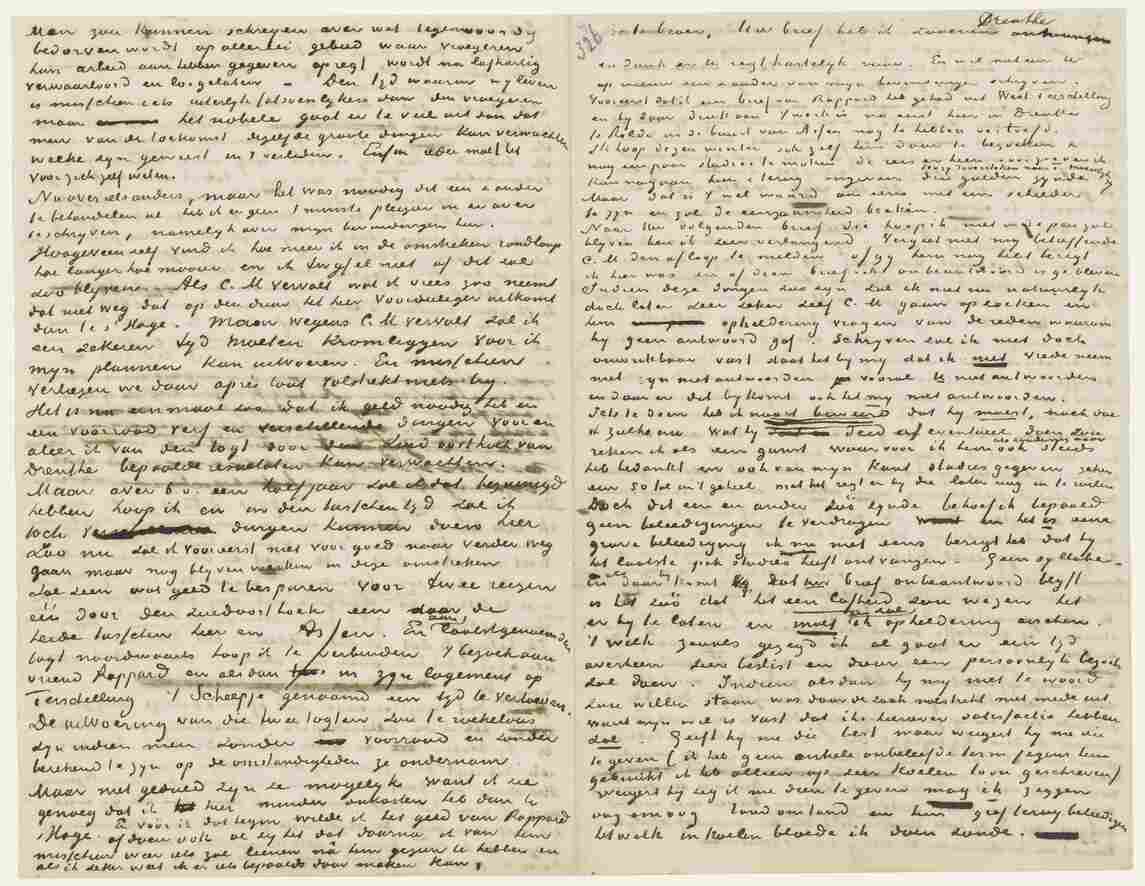 Men zou kunnen schrijven over wat tegenwoordig
bedorven wordt op allerlei gebied waar vroegeren
hun arbeid aan hebben gegeven op regt wordt nu lafhartig
verwaarloosd en losgelaten – Den tijd waarin wij leven
is misschien iets uiterlijk fatsoenlijkers dan den vroegeren
maar het nobele gaat er te veel uit dan dat
men van de toekomst dezelfde groote dingen kan verwachten
welke zijn geweest in 't verleden. Enfin ieder moet het
voor zich zelf weten.
Nu over iets anders, maar het was noodig dit een & ander
te behandelen al heb ik er geen 't minste plezier in er over
te schrijven, namelijk over mijn bevindingen hier.
Hoogeveen zelf vind ik hoe meer ik in de omstreken rondloop
hoe langer hoe mooier en ik twijfel niet of dit zal
zoo blijven. Als C.M. vervalt wat ik vrees zoo neemt
dat niet weg dat op den duur het hier voordeeliger uitkomt
dan te s'Hage. Maar wegens C.M. verval zal ik
een zekeren tijd moeten kromliggen voor ik
mijn plannen kan uitvoeren. En misschien
verliezen we daar après tout volstrekt niets bij.
Het is nu eenmaal zoo dat ik geld noodig heb en
een voorraad verf en verschillende dingen vooren
aleer ik van den togt door den Zuid oosthoek van
Drenthe bepaalde resultaten kan verwachten.
Maar over b.v. een half jaar zal ik dat bezuinigd
hebben hoop ik en in den tusschentijd zal ik
toch dingen kunnen doen hier
Zoo nu zal ik vooreerst niet voor goed naar verder weg
gaan maar nog blijven werken in deze omstreken
Zal zien wat geld te besparen voor twee reizen
één door den Zuidoosthoek een door de
heide tusschen hier en Assen. En aan laatstgenoemden
togt noordwaarts hoop ik te verbinden 't bezoek aan
vriend Rappard en als dan in zijn logement op
Terschelling 't Scheepje genaamd een tijd te vertoeven.
De uitvoering van die twee togten zou te roekeloos
zijn indien men zonder voorraad en zonder
berekend te zijn op de omstandigheden ze ondernam.
Maar met geduld zijn ze mogelijk want ik zie
genoeg dat ik hier minder onkosten heb dan te
s'Hage. & vóór ik dat begin wilde ik het geld van Rappard
afdoen ook al zij het dat daarna ik van hem
misschien weer iets zal leenen na hem gezien te hebben en
als ik zeker weet wat ik er iets bepaalds door maken kan,
326
Drenthe
Uw brief heb ik zooeven ontvangen
en dank er U regt hartelijk voor. En wil meteen U
op nieuw een & ander van mijn bevindingen schrijven.
Vooreerst dat ik een brief van Rappard heb gehad uit West Terschelling
en hij daar druk aan 't werk is na eerst hier in Drenthe
te Rolde in de buurt van Assen nog te hebben vertoefd.
Ik hoop dezen winter ook zelf hem daar te bezoeken &
nog een paar studies te maken
Maar dat is 't wel waard om eens met een schilder
te zijn en zal de eenzaamheid breken.
Naar Uw volgenden brief die hoop ik niet meer zal
blijven ben ik zeer verlangend. Vergeet niet mij betreffende
C.M. den afloop te melden of gij hem nog hebt terwijl
ik hier was en of dien brief ook onbeantwoord is gebleven
Indien deze dingen zus zijn zal ik niet nu natuurlijk
doch later zeer zeker zelf C.M. gaan opzoeken en
hem opheldering vragen van de reden waarom
hij geen antwoord gaf. Schrijven zal ik niet doch
onwrikbaar vast staat het bij mij dat ik niet vrede neem
met zijn niet antwoorden vooral U niet antwoorden
en daar er dit bij komt ook het mij niet antwoorden.
Iets te doen heb ik nooit beweerd dat hij moest, noch doe
ik zulks nu. Wat hij deed of eventueel doen zou
reken ik als een gunst waarvoor ik hem ook steeds
heb bedankt en ook van mijn kant studies gegeven zeker
een 50 tal in 't geheel, met het regt er bij die later nog in te ruilen
Doch dit een en ander zóó zijnde behoef ik bepaald
geen beleedigingen te verdragen en het is eene
grove beleediging ik nu niet eens berigt heb dat hij
het laatste pak studies heeft ontvangen. Geen syllabe –
En daar bij komt dat Uw brief onbeantwoord blijft
is het zóó dat het een lafheid zou wezen het
er bij te laten en moet en zal ik opheldering eischen.
't welk zooals gezegd ik al gaat er een tijd
overheen zeer beslist en door een persoonlijk bezoek
zal doen. Indien alsdan hij mij niet te woord
zou willen staan was daar de zaak volstrekt niet mede uit
want mijn wil is vast dat ik hierover satisfactie hebben
zal. Geeft hij me die best maar weigert hij me die
te geven (ik heb geen enkele onbeleefde term jegens hem
gebruikt ik heb alleen op zeer koelen toon geschreven)
weigert hij zeg ik me dien te geven mag ik zeggen
oog om oog tand om tand en hem grof terug beleedigen
hetwelk in koelen bloede ik doen zoude.